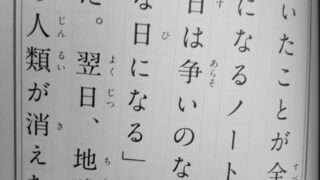 いたことが全
になるノート
日は争いのな
な日になる」
た。翌日、地
人類が消えた